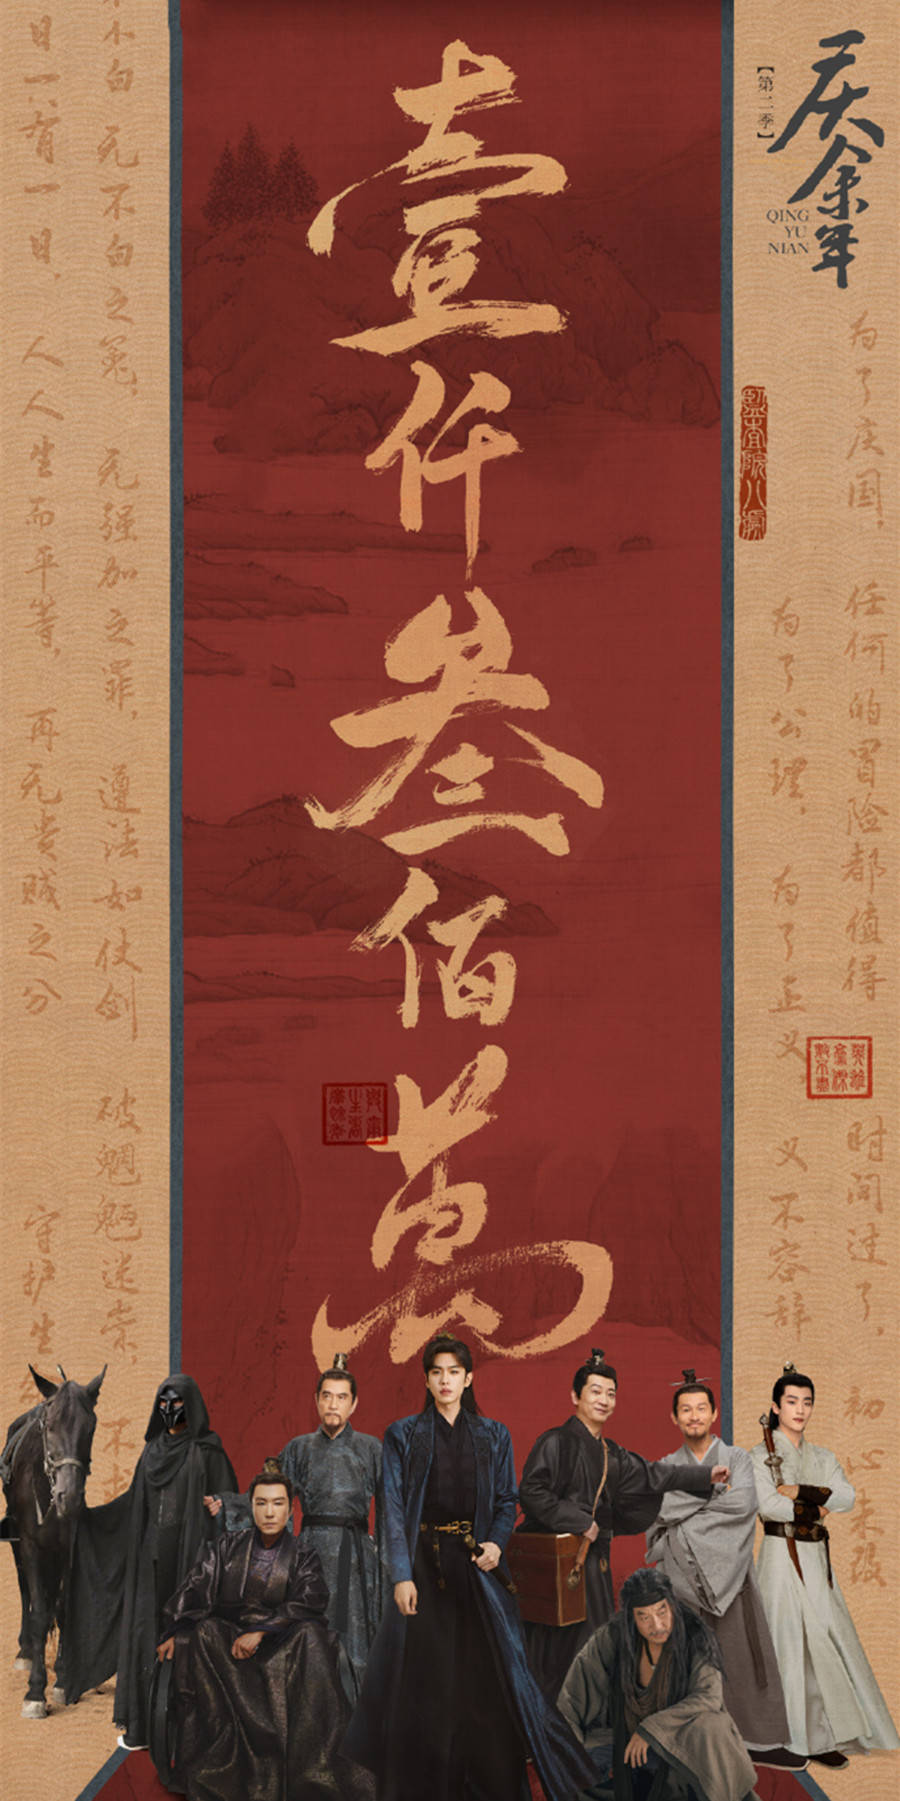 庆余年
【第二季】
QING
YU
NIAN
壹仟叁佰萬
为了庆国，任何的冒险都值得
时间过了，初心未改
为了公理，为了正义，义不容辞
监查院八处
不白 无不白之冤，无强加之罪，遵法如仗剑 破魍魉迷祟，不求
日一 有一日，人人生而平等，再无贵贱之分 守护生